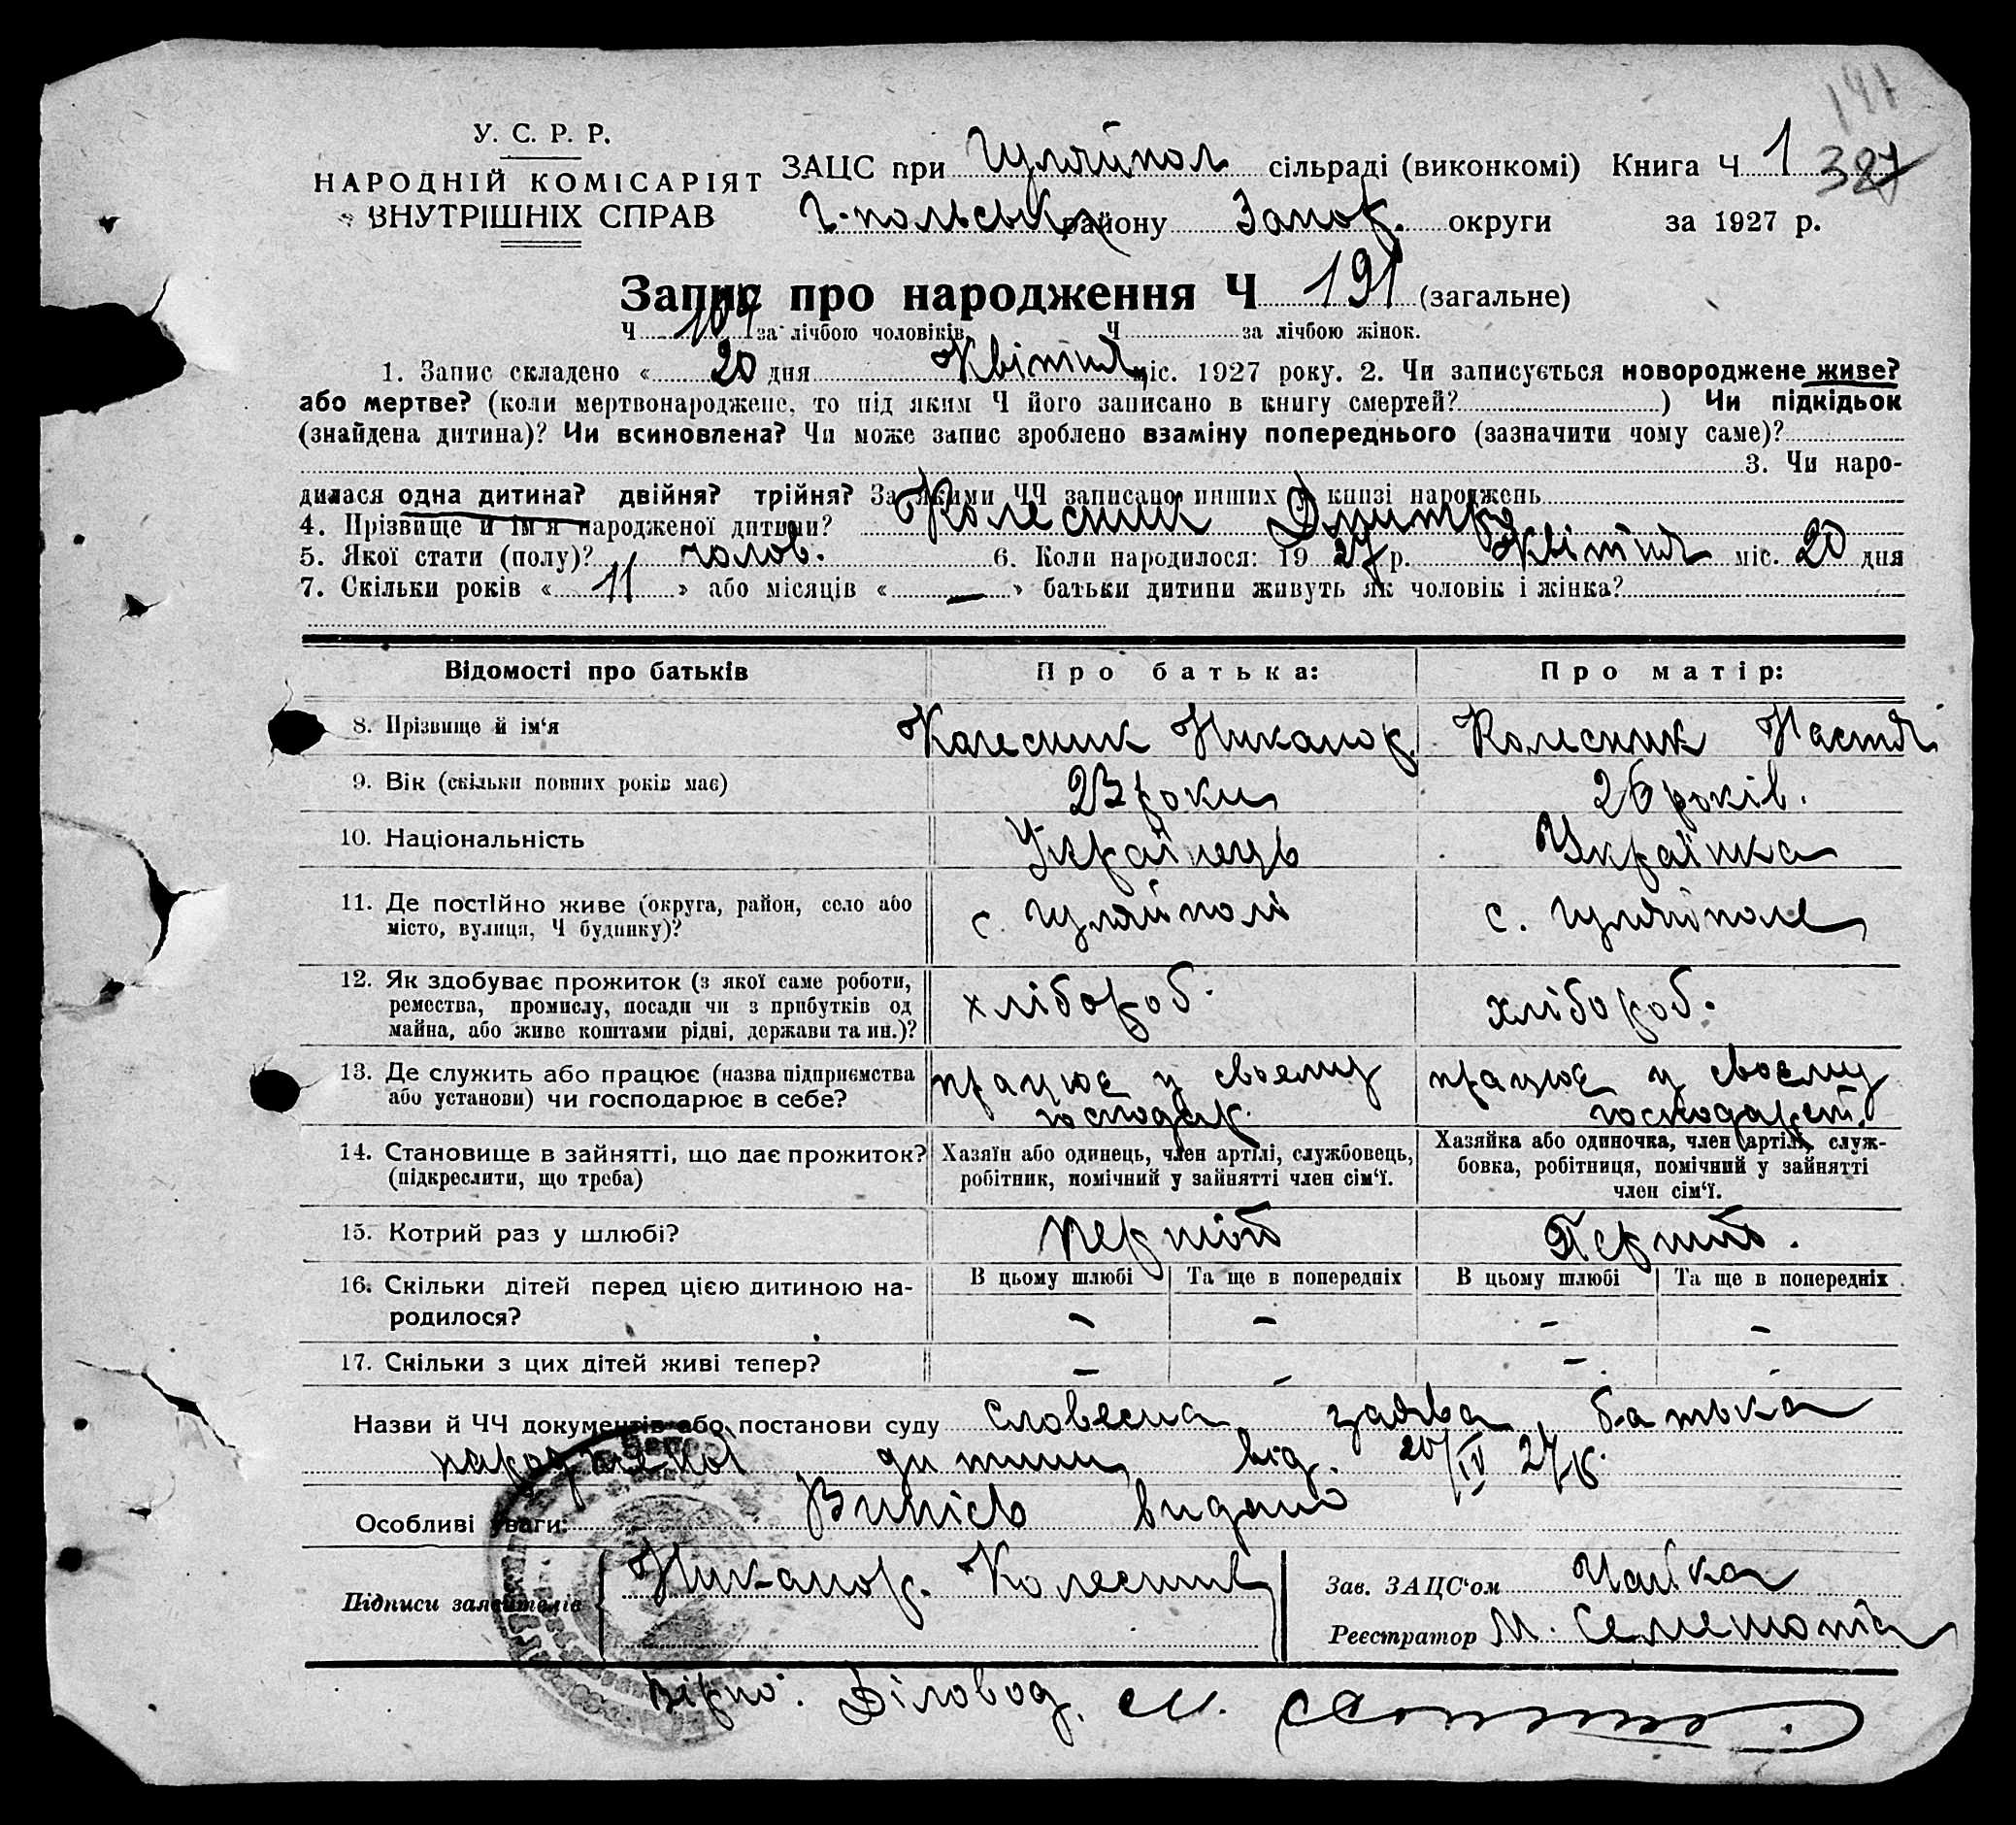 141
У. С. Р. Р.
НАРОДНІЙ КОМІСАРІЯТ
ВНУТРІШНІХ СПРАВ
ЗАЦС при Гуляйпол сільраді (виконкомі) Книга Ч 1 327
Г-польськ району Запор. округи за 1927 р.
Запис про народження Ч 191 (загальне)
Ч 107 за лічбою чоловіків Ч за лічбою жінок.
1. Запис складено « 20 дня Квітня міс. 1927 року. 2. Чи записується новороджене живе?
або мертве? (коли мертвонароджене, то під яким Ч його записано в книгу смертей? ) Чи підкідьок
(знайдена дитина)? Чи всиновлена? Чи може запис зроблено взаміну попереднього (зазначити чому саме)?
3. Чи наро-
дилася одна дитина? двійня? трійня? За якими ЧЧ записано инших в книзі народжень
4. Прізвище й ім'я народженої дитини? Колесник Дмитро
5. Якої стати (полу)? чолов. 6. Коли народилося: 19 27 р. Квітня міс. 20 дня
7. Скільки років « 11 » або місяців « — » батьки дитини живуть як чоловік і жінка?
Відомості про батьків Про батька: Про матір:
8. Прізвище й ім'я Колесник Никанор. Колесник Настя
9. Вік (скільки повних років має) 23 роки 26 років.
10. Національність Українець Українка
11. Де постійно живе (округа, район, село або
місто, вулиця, Ч будинку)? с. Гуляйполе с. Гуляйполе
12. Як здобуває прожиток (з якої саме роботи,
ремества, промислу, посади чи з прибутків од
майна, або живе коштами рідні, держави та ин.)? хлібороб. хлібороб.
13. Де служить або працює (назва підприємства працює у своему працює у своему
або установи) чи господарює в себе? господар. господарст.
14. Становище в зайнятті, що дає прожиток?
(підкреслити, що треба)
Хазяїн або одинець, член артілі, службовець,
робітник, помічний у зайнятті член сім'ї.
Хазяйка або одиночка, член артілі, служ-
бовка, робітниця, помічний у зайнятті
член сім'ї.
15. Котрий раз у шлюбі? перший Перший.
16. Скільки дітей перед цією дитиною на-
родилося?
В цьому шлюбі Та ще в попередніх В цьому шлюбі Та ще в попередніх
– – – –
17. Скільки з цих дітей живі тепер? – – – –
Назви й ЧЧ документів або постанови суду Словесна заява батька
народженої дитини від. 20/IV 27 р.
Особливі уваги: Випісь видано
Підписи заявителів Никанор. Колесник
Зав. ЗАЦС'ом Чайка
Реєстратор М.
Вірно: Діловод. М.